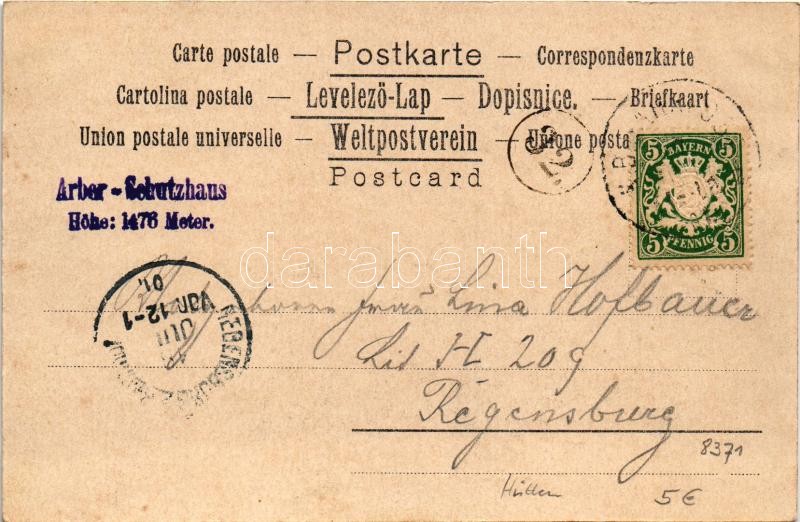 Carte postale — Postkarte — Correspondenzkarte
Cartolina postale — Levelezö-Lap — Dopisnice. — Briefkaart
Union postale universelle — Weltpostverein — Unione posta
Postcard
32.
5 BAYERN 5
5 PFENNIG 5
Arber-Schutzhaus
Höhe: 1476 Meter.
REGENSBURG
JUL
Vor. 12-1
01.
Frau Lina Hofbauer
Lit H 209
Regensburg
8371
Hütten
5€
darabanth